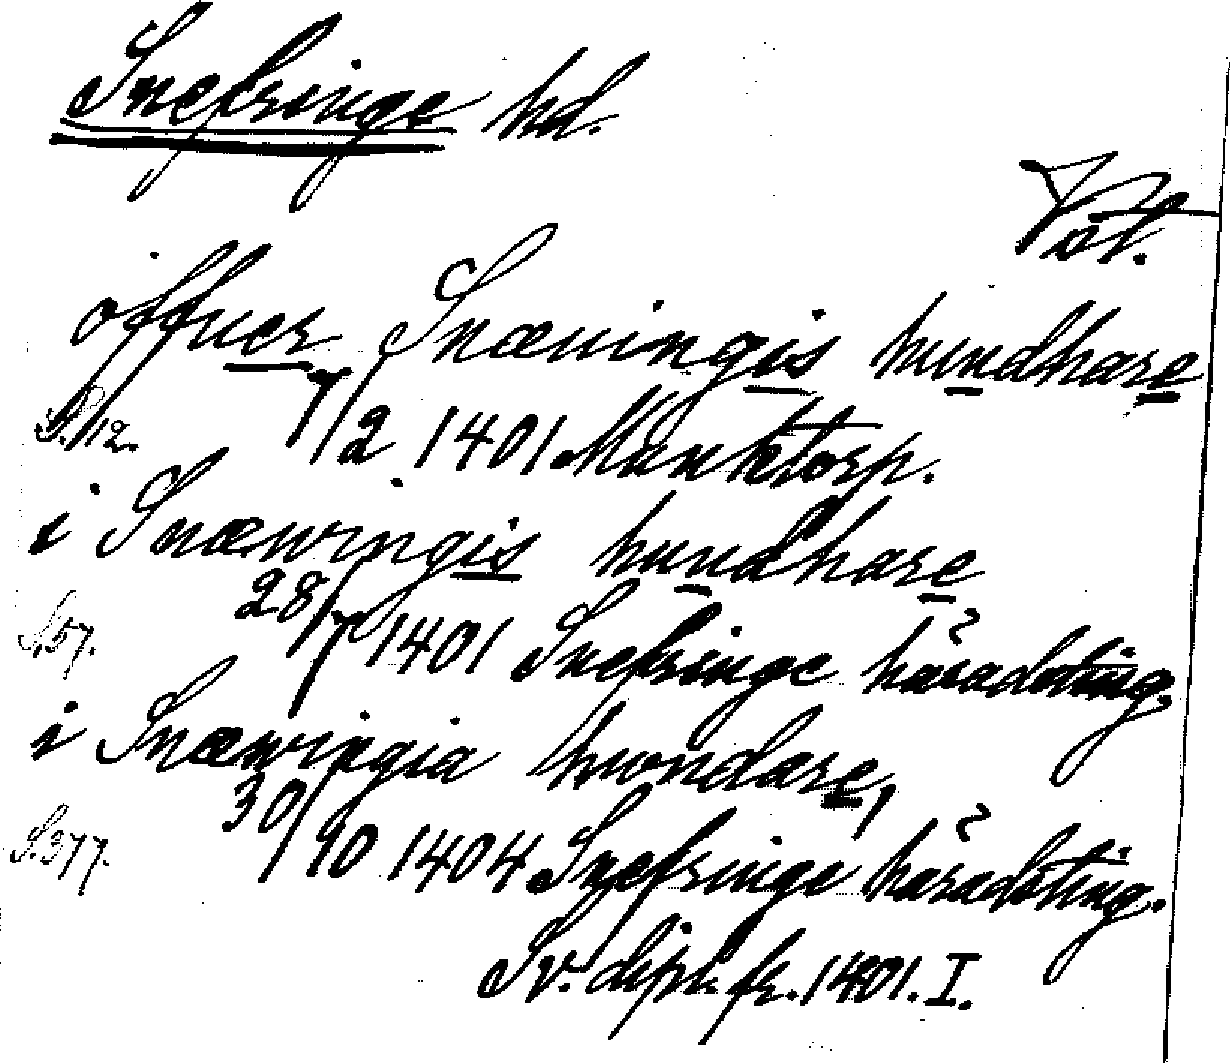 Snefringe hd.
Väst.
öffuer Snæuingis hundhare
S. 12. 7/2 1401 Munktorp.
i Snæwringis hundhare
S. 57. 28/7 1401 Snefringe häradsting,
i Snæwringia hwndare,
S. 377. 30/10 1404 Snefringe häradsting.
Sv. dipl. fr. 1401. I.